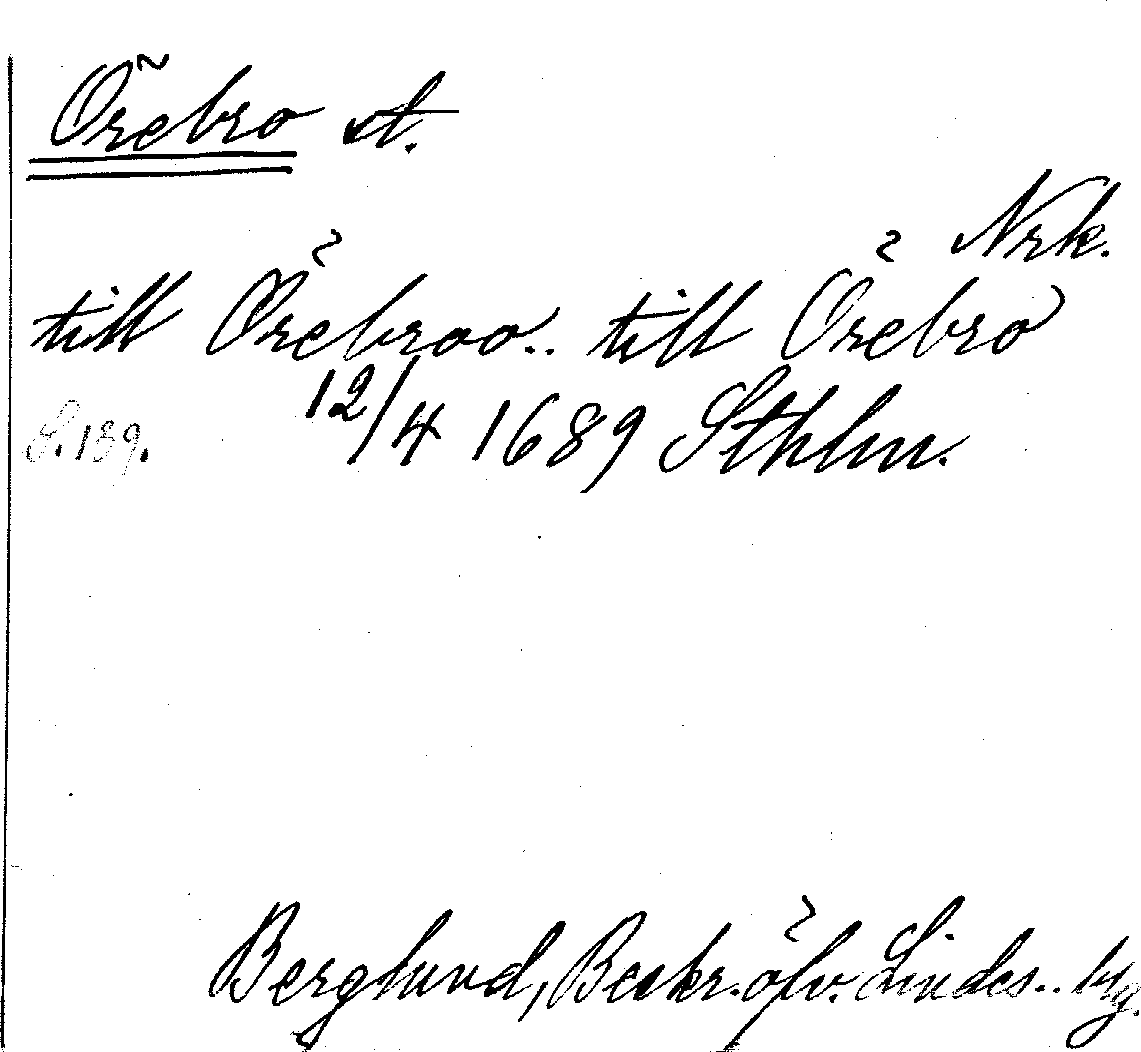 Örebro st.
Nrk.
till Örebroo.. till Örebro
S. 139. 12/4 1689 Sthlm.
Berglund, Beskr. öfv. Lindes..